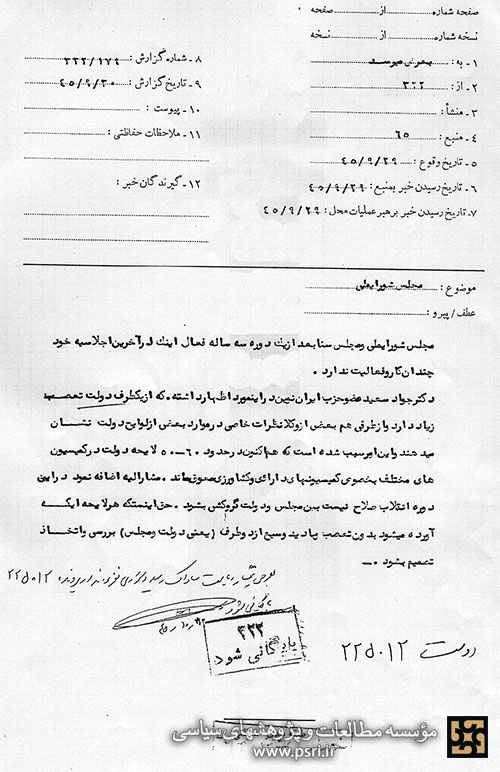 صفحه شماره ........ از ........ صفحه
نسخه شماره ........ از ........ نسخه
۱ ـ به : بعرض میرسد
۲ ـ از : ۳۲۲
۳ ـ منشأ :
۴ ـ منبع : ۶۵
۵ ـ تاریخ وقوع : ۴۵/۹/۲۹
۶ ـ تاریخ رسیدن خبر بمنبع : ۴۵/۹/۲۹
۷ ـ تاریخ رسیدن خبر برهبر عملیات محل : ۴۵/۹/۲۹
۸ ـ شماره گزارش : ۳۲۲/۱۷۹
۹ ـ تاریخ گزارش : ۴۵/۹/۳۰
۱۰ ـ پیوست :
۱۱ ـ ملاحظات حفاظتی :
۱۲ ـ گیرندگان خبر :
موضوع : مجلس شورایملی
عطف / پیرو :
مجلس شورایملی ومجلس سنا بعد ازیک دوره سه ساله فعال اینک درآخرین اجلاسیه خود
چندان کاروفعالیت ندارد .
دکترجواد سعید عضوحزب ایران نوین دراینمورد اظهارداشته . که ازیکطرف دولت تعصب
زیاد دارد وازطرفی هم بعض ازوکلا نظرات خاصی درموارد بعض ازلوایح دولت نشان
میدهند واین امرسبب شده است که هم اکنون درحدود ۶۰-۵۰ لایحه دولت درکمیسیون
های مختلف بخصوص کمیسیونهای دارائی وکشاورزی معوق ماند . مشارالیه اضافه نمود دراین
دوره انقلاب صلاح نیست بین مجلس ودولت گروکشی بشود . حق اینستکه هرلایحه ایکه
آورده میشود بدون تعصب وبادید وسیع ازدوطرف (یعنی دولت ومجلس) بررسی واتخاذ
تصمیم بشود .-
۲۲۵۰۱۲
بایگانی شود
۳۲۲
بایگانی شود
۲۲۵۰۱۲
مؤسسه مطالعات و پژوهشهای سیاسی
www.psri.ir